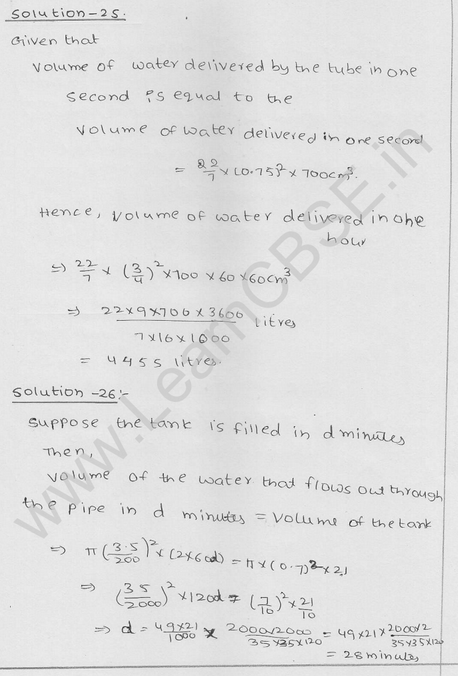 Solution-25:
Given that
Volume of water delivered by the tube in one
second is equal to the
Volume of water delivered in one second
= 22/7 × (0.75)² × 700cm³.
Hence, Volume of water delivered in one
hour
⇒ 22/7 × (3/4)² × 700 × 60 × 60cm³
⇒ 22×9×700×3600 / 7×16×1000 litres
= 4455 litres.
Solution-26:-
Suppose the tank is filled in d minutes
Then,
Volume of the water that flows out through
the pipe in d minutes = Volume of the tank
⇒ π(3.5/200)² × (2×60d) = π × (0.7)² × 2.1
⇒ (35/2000)² × 120d = (7/10)² × 21/10
⇒ d = 49×21/1000 × 2000×2000/35×35×120 = 49×21× 2000×2/35×35×120
= 28 minutes
www.LearnCBSE.in